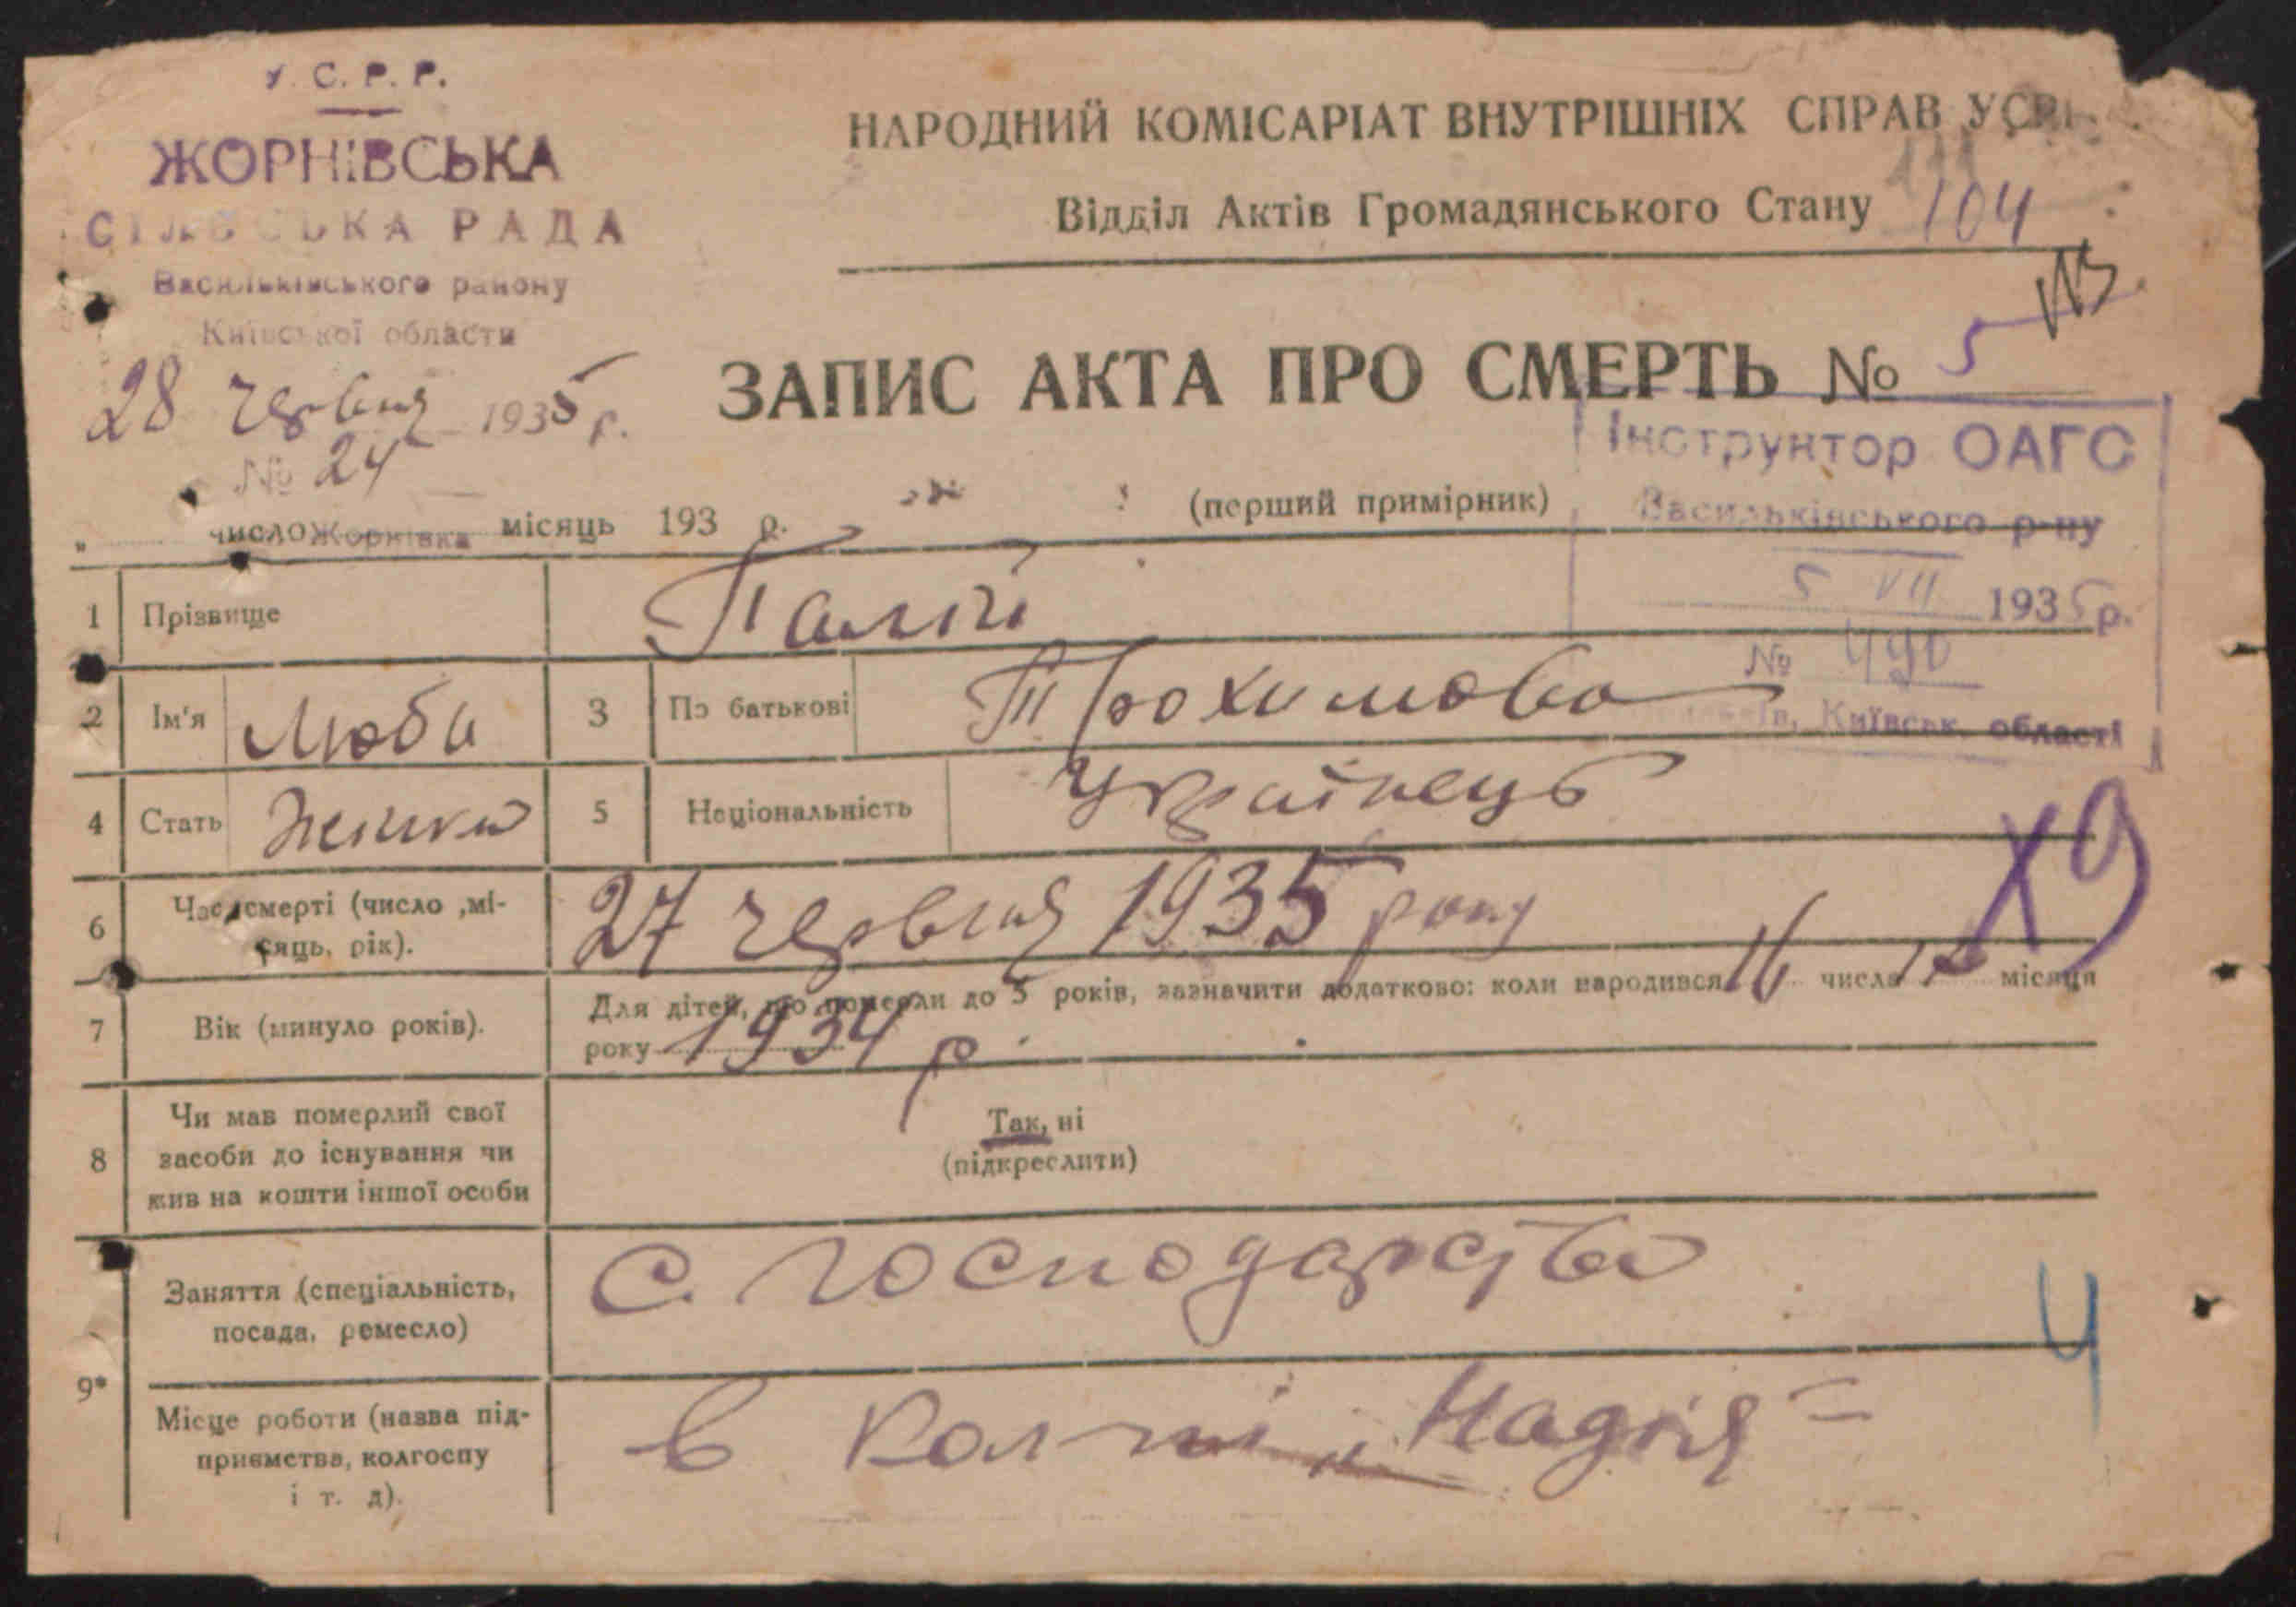 У. С. Р. Р.
ЖОРНІВСЬКА
СІЛЬСЬКА РАДА
Васильківського району
Київської области
28 червня 1935 р.
№ 24
Жорнівка
НАРОДНИЙ КОМІСАРІАТ ВНУТРІШНІХ СПРАВ УСРР
Відділ Актів Громадянського Стану 104
111
113
ЗАПИС АКТА ПРО СМЕРТЬ № 5
Інструктор ОАГС
Васильківського р-ну
5 VII 1935 р.
№ 490
Київськ. області
„ число місяць 193 р. (перший примірник)
1 Прізвище Палій
2 Ім'я Люба 3 По батькові Трохимова
4 Стать Жінка 5 Національність Українець
6 Час смерті (число, мі-
сяць, рік). 27 червня 1935 року
Х9
7 Вік (минуло років). Для дітей, що померли до 5 років, зазначити додатково: коли народився 16 числа місяця
року 1934 р.
8 Чи мав померлий свої
засоби до існування чи
жив на кошти іншої особи
Так, ні
(підкреслити)
9*
Заняття (спеціальність,
посада, ремесло) С. Господарство
4
Місце роботи (назва під-
приємства, колгоспу
і т. д). в "Надія"